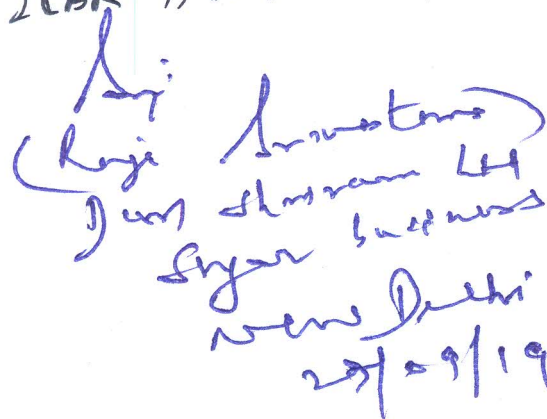 (Raji Srivastava)
DCM Shriram Ltd
Sugar business
New Delhi
27/09/19